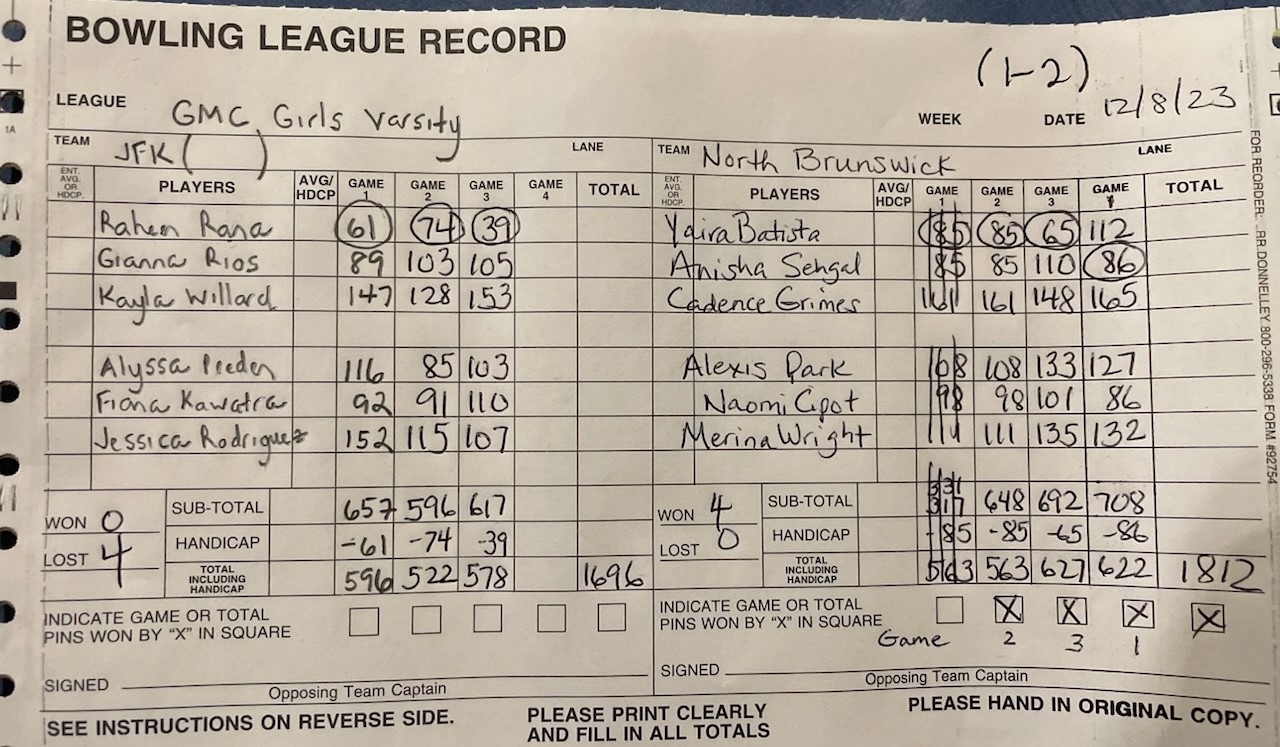 BOWLING LEAGUE RECORD
(1-2)
LEAGUE GMC Girls Varsity WEEK DATE 12/8/23
TEAM JFK ( ) LANE TEAM North Brunswick LANE
ENT. AVG. OR HDCP. PLAYERS AVG/HDCP GAME 1 GAME 2 GAME 3 GAME 4 TOTAL ENT. AVG. OR HDCP. PLAYERS AVG/HDCP GAME 1 GAME 2 GAME 3 GAME 1 TOTAL
Raheen Rana 61 74 39 Yaira Batista 85 85 65 112
Gianna Rios 89 103 105 Anisha Sehgal 85 85 110 86
Kayla Willard 147 128 153 Cadence Grimes 161 161 148 165
Alyssa 116 85 103 Alexis Park 108 108 133 127
Fiona Kawatra 92 91 110 Naomi Cipot 98 98 101 86
Jessica Rodriguez 152 115 107 Merina Wright 111 111 135 132
WON 0 SUB-TOTAL 657 596 617 WON 4 SUB-TOTAL 648 692 708
LOST 4 HANDICAP -61 -74 -39 LOST 0 HANDICAP -85 -85 -65 -86
TOTAL INCLUDING HANDICAP 596 522 578 1696 TOTAL INCLUDING HANDICAP 563 563 627 622 1812
INDICATE GAME OR TOTAL PINS WON BY "X" IN SQUARE INDICATE GAME OR TOTAL PINS WON BY "X" IN SQUARE X X X X
Game 2 3 1
SIGNED Opposing Team Captain SIGNED Opposing Team Captain
SEE INSTRUCTIONS ON REVERSE SIDE. PLEASE PRINT CLEARLY AND FILL IN ALL TOTALS PLEASE HAND IN ORIGINAL COPY.
FOR REORDER: RR DONNELLEY 800-296-5338 FORM #92754
1A